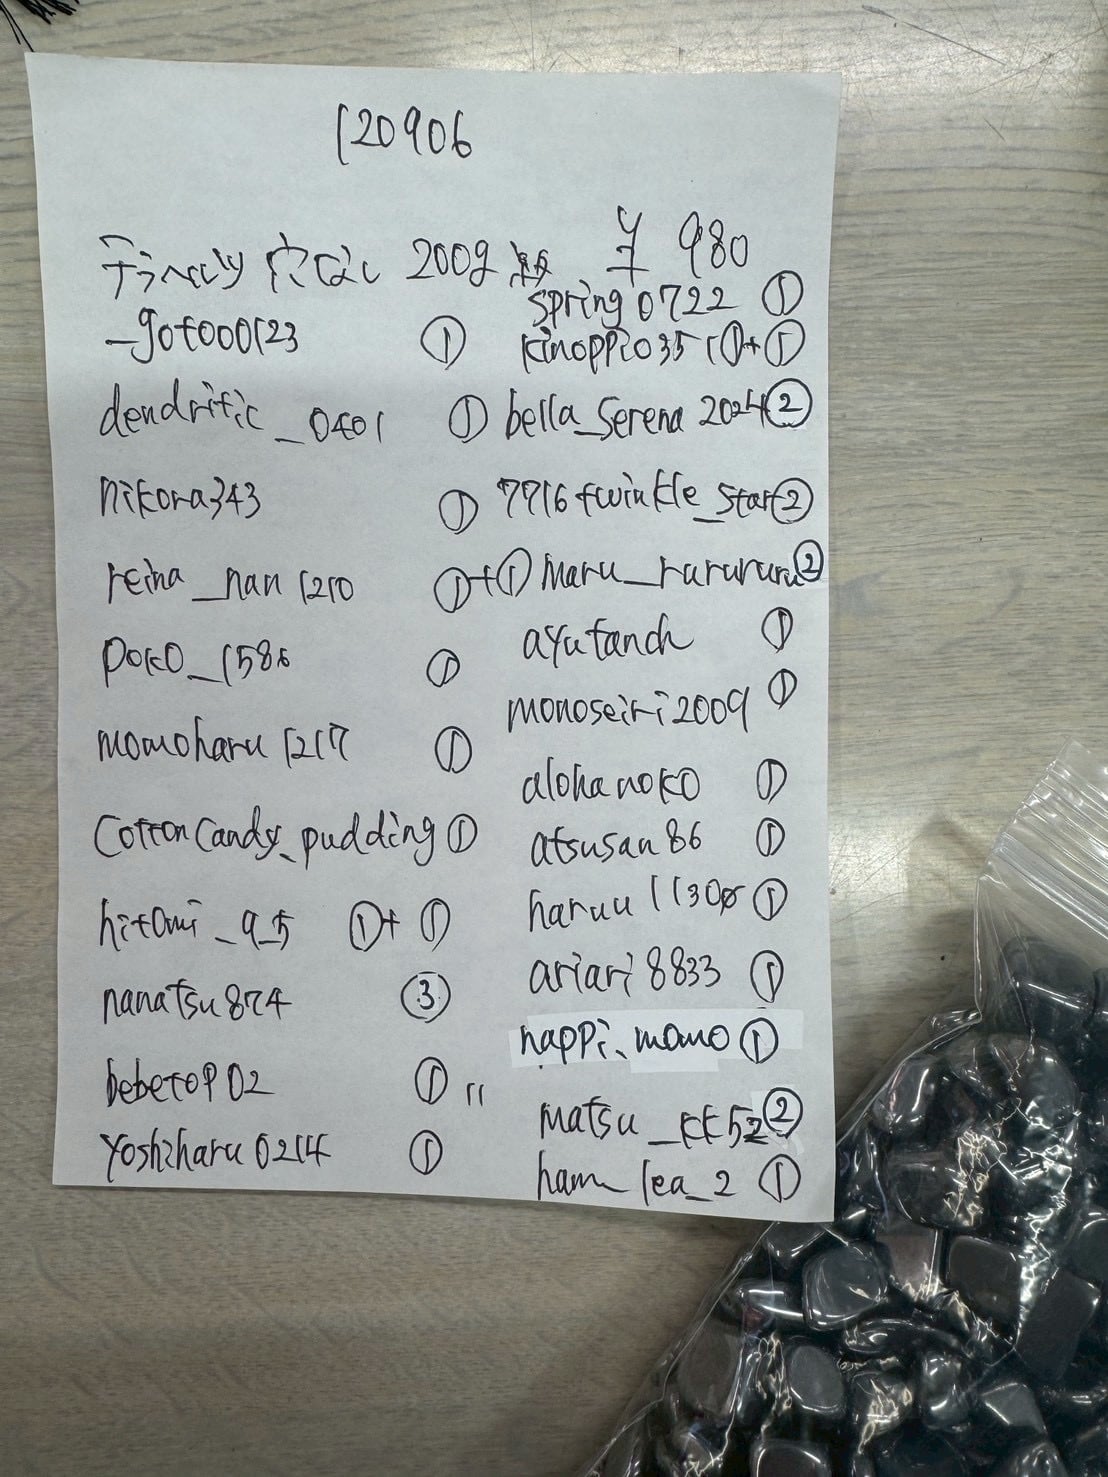 120906
テラヘルツ 穴なし 2009 ¥ 980
_goto00123 ①
dendritic_0401 ①
nikora343 ①
reina_nan1210 ①+①
poko_1586 ①
momoharu1217 ①
cottoncandy_pudding ①
hitomi_9_5 ①+①
nanatsu874 ③
bebetop02 ① 11
yoshiharu0214 ①
spring0722 ①
kinoppio351 ①+①
bella_serena2024 ②
7716twinkle_star ②
maru_rarururu ②
ayutanch ①
monoseiri2009 ①
alohanoko ①
atsusan86 ①
haruu1130 ①
ariari8833 ①
happi.momo ①
matsu_kk52 ②
ham_lea_2 ①